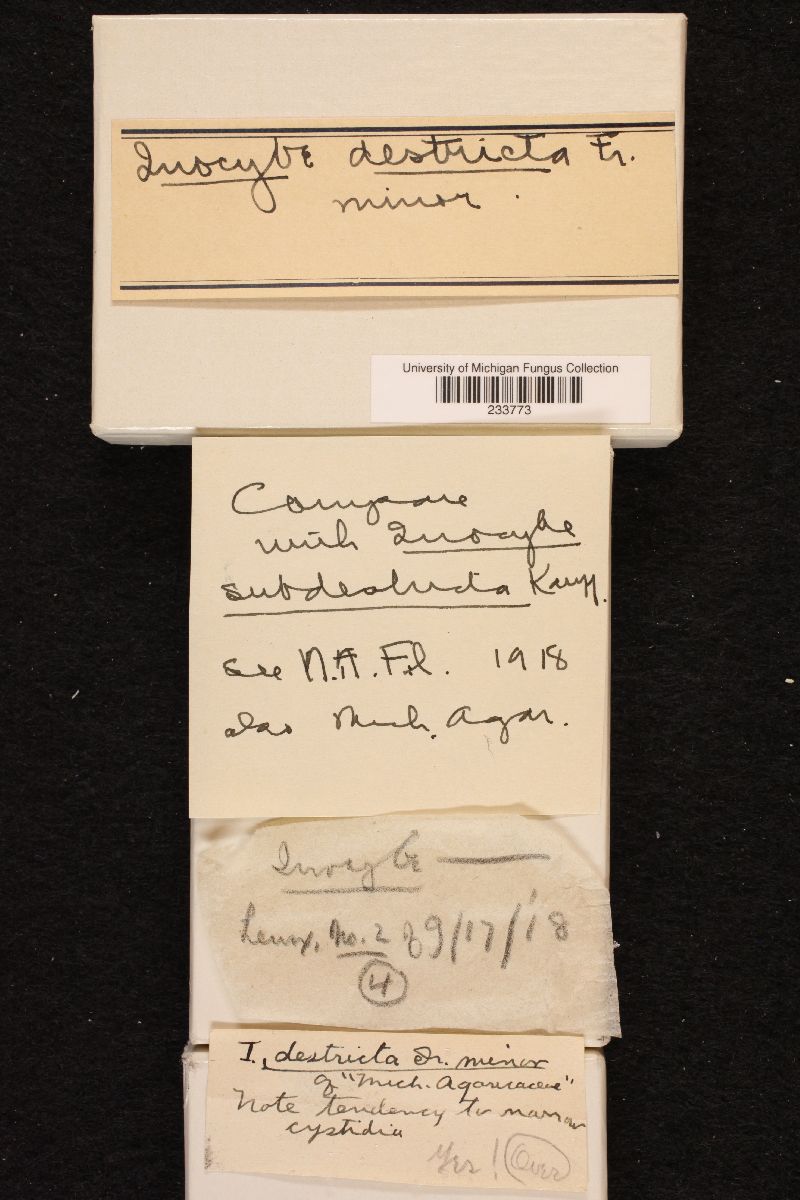 Inocybe destricta Fr.
minor.
University of Michigan Fungus Collection
233773
Compare
with Inocybe
subdestricta Kauff.
see N.A.Fl. 1918
also Mich. Agar.
Inocybe —
Lenox, No. 2 of 9/17/'18
4
I. destricta Fr. minor
of "Mich. Agaricaceae"
Note tendency to narrow
cystidia
Yes! Over